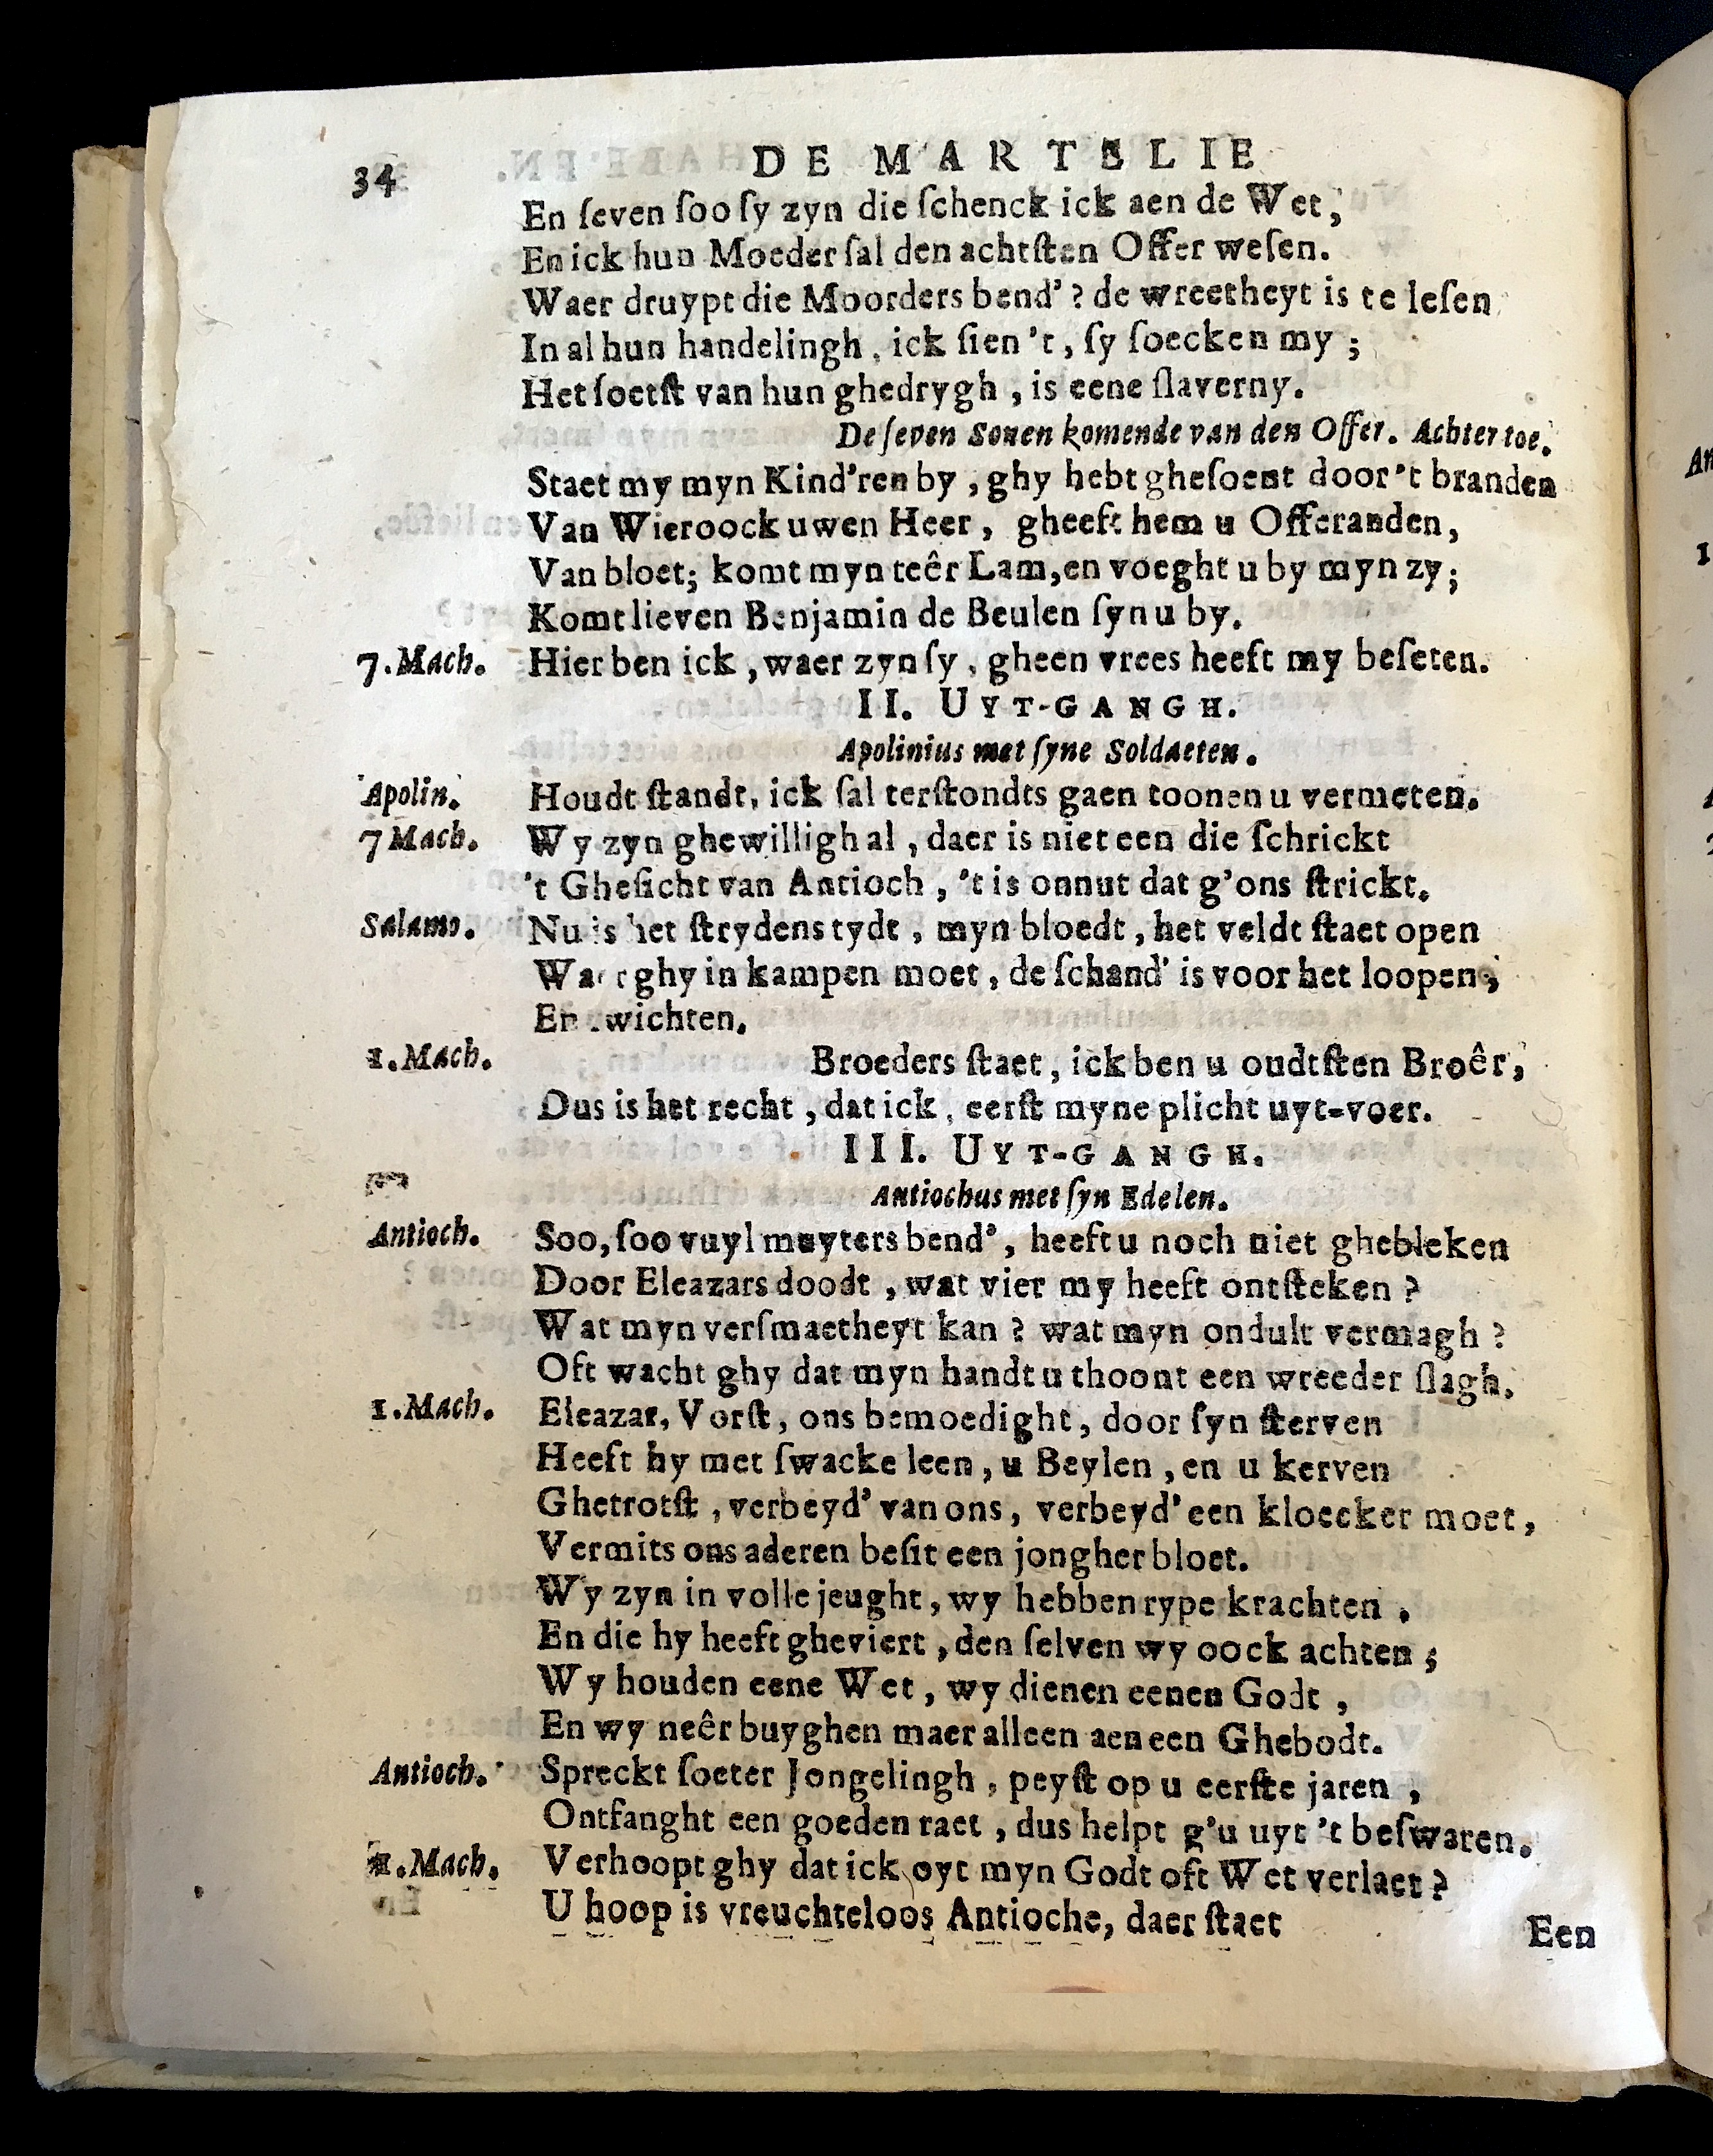 34 DE MARTELIE
En ſeven ſoo ſy zyn die ſchenck ick aen de Wet,
En ick hun Moeder ſal den achtſten Offer weſen.
Waer druypt die Moorders bend' ? de wreetheyt is te leſen
In al hun handelingh, ick ſien 't, ſy ſoecken my ;
Het ſoetſt van hun ghedrygh, is eene ſlaverny.
De ſeven Sonen komende van den Offer. Achter toe.
Staet my myn Kind'ren by, ghy hebt gheſoent door 't branden
Van Wieroock uwen Heer, gheeft hem u Offeranden,
Van bloet; komt myn teêr Lam, en voeght u by myn zy;
Komt lieven Benjamin de Beulen ſyn u by.
7. Mach. Hier ben ick, waer zyn ſy, gheen vrees heeft my beſeten.
II. UYT-GANGH.
Apolinius met ſyne Soldaeten.
Apolin. Houdt ſtandt, ick ſal terſtondts gaen toonen u vermeten.
7 Mach. Wy zyn ghewilligh al, daer is niet een die ſchrickt
't Gheſicht van Antioch, 't is onnut dat g'ons ſtrickt.
Salamo. Nu is het ſtrydens tydt, myn bloedt, het veldt ſtaet open
Waer ghy in kampen moet, de ſchand' is voor het loopen;
En wichten.
1. Mach. Broeders ſtaet, ick ben u oudtſten Broêr,
Dus is het recht, dat ick, eerſt myne plicht uyt-voer.
III. UYT-GANGH.
Antiochus met ſyn Edelen.
Antioch. Soo, ſoo vuyl muyters bend', heeft u noch niet ghebleken
Door Eleazars doodt, wat vier my heeft ontſteken ?
Wat myn verſmaetheyt kan ? wat myn ondult vermagh ?
Oft wacht ghy dat myn handt u thoont een wreeder ſlagh.
1. Mach. Eleazar, Vorſt, ons bemoedight, door ſyn ſterven
Heeft hy met ſwacke leen, u Beylen, en u kerven
Ghetrotſt, verbeyd' van ons, verbeyd' een kloecker moet,
Vermits ons aderen beſit een jongher bloet.
Wy zyn in volle jeught, wy hebben rype krachten,
En die hy heeft gheviert, den ſelven wy oock achten ;
Wy houden eene Wet, wy dienen eenen Godt,
En wy neêr buyghen maer alleen aen een Ghebodt.
Antioch. Spreckt ſoeter Jongelingh, peyſt op u eerſte jaren,
Ontfanght een goeden raet, dus helpt g'u uyt 't beſwaren.
1. Mach. Verhoopt ghy dat ick oyt myn Godt oft Wet verlaet ?
U hoop is vreuchteloos Antioche, daer ſtaet
Een